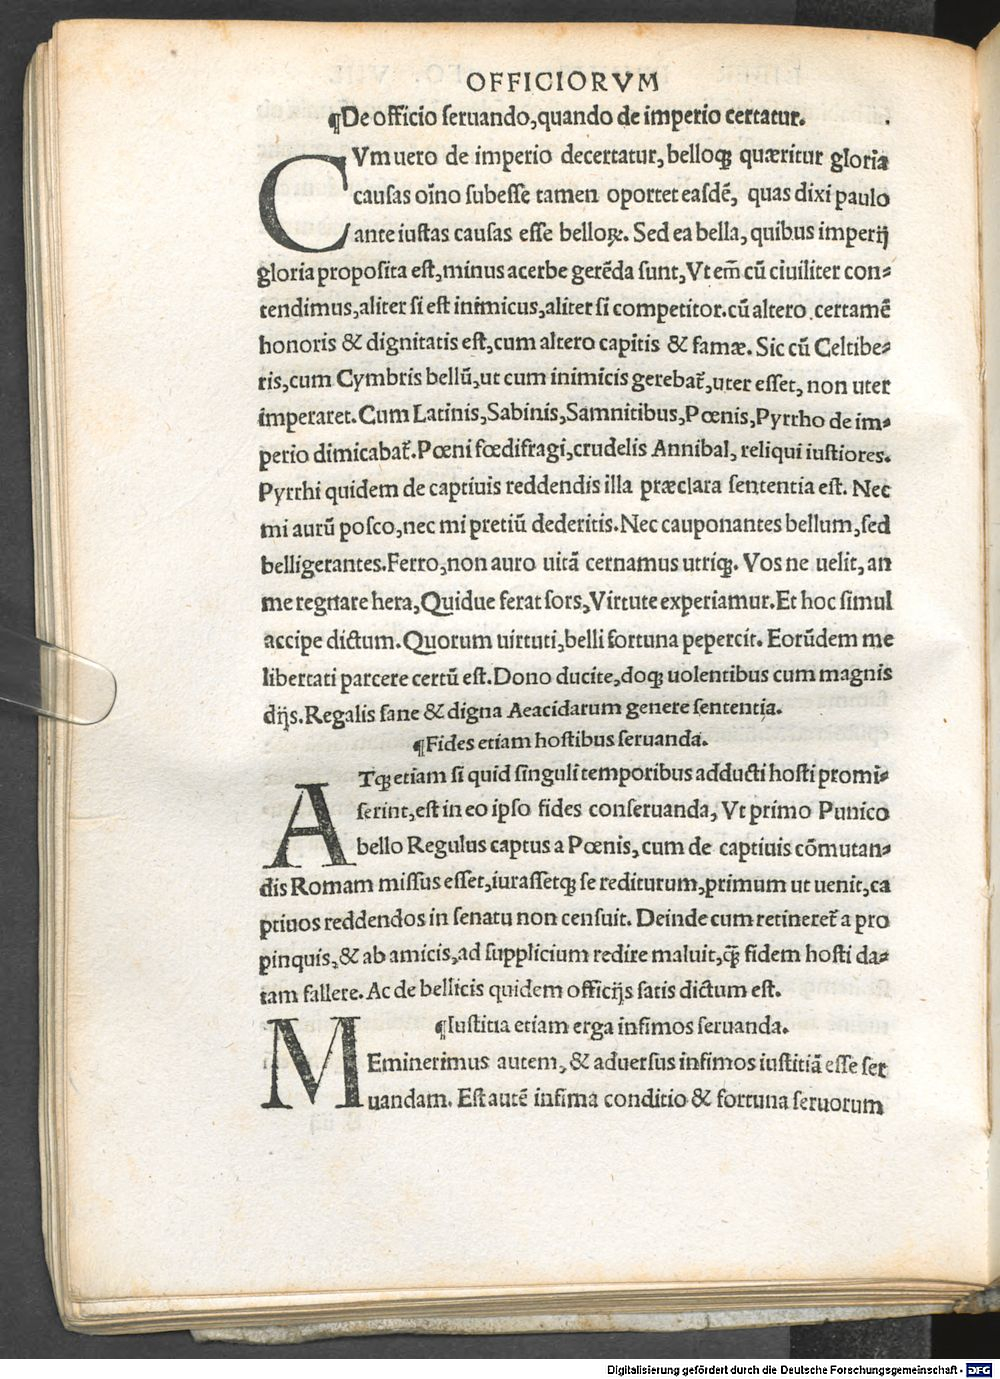 OFFICIORVM
¶De officio seruando,quando de imperio certatur.
CVm uero de imperio decertatur,belloq; quæritur gloria
causas oĩno subesse tamen oportet easdẽ, quas dixi paulo
ante iustas causas esse belloꝝ. Sed ea bella,quibus imperij
gloria proposita est,minus acerbe gerẽda sunt,Vt em̃ cũ ciuiliter con-
tendimus,aliter si est inimicus,aliter si competitor.cũ altero certamẽ
honoris & dignitatis est,cum altero capitis & famæ. Sic cũ Celtibe-
ris,cum Cymbris bellũ,ut cum inimicis gerebat̃,uter esset, non uter
imperaret.Cum Latinis,Sabinis,Samnitibus,Pœnis,Pyrrho de im-
perio dimicabat̃.Pœni fœdifragi,crudelis Annibal, reliqui iustiores.
Pyrrhi quidem de captiuis reddendis illa præclara sententia est. Nec
mi aurũ posco,nec mi pretiũ dederitis.Nec cauponantes bellum,sed
belligerantes.Ferro,non auro uitã cernamus utriq;. Vos ne uelit, an
me regnare hera,Quidue ferat sors,Virtute experiamur.Et hoc simul
accipe dictum.Quorum uirtuti,belli fortuna pepercit. Eorũdem me
libertati parcere certũ est.Dono ducite,doq; uolentibus cum magnis
dijs.Regalis sane & digna Aeacidarum genere sententia.
¶Fides etiam hostibus seruanda.
ATq; etiam si quid singuli temporibus adducti hosti promi-
serint,est in eo ipso fides conseruanda, Vt primo Punico
bello Regulus captus a Pœnis, cum de captiuis cõmutan-
dis Romam missus esset,iurassetq; se rediturum,primum ut uenit,ca
ptiuos reddendos in senatu non censuit. Deinde cum retineret̃ a pro
pinquis,& ab amicis,ad supplicium redire maluit,q̃ fidem hosti da-
tam fallere.Ac de bellicis quidem officijs satis dictum est.
¶Iustitia etiam erga infimos seruanda.
MEminerimus autem, & aduersus infimos iustitiã esse ser
uandam. Est autẽ infima conditio & fortuna seruorum
Digitalisierung gefördert durch die Deutsche Forschungsgemeinschaft - DFG